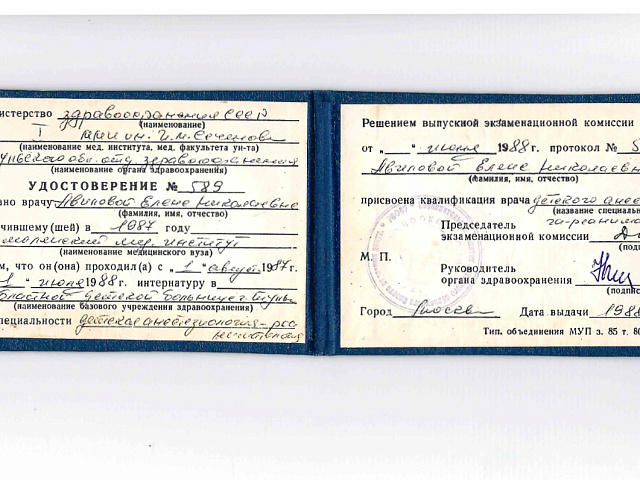 истерство здравоохранения СССР
(наименование)
I ММИ им. И.М. Сеченова
(наименование мед. института, мед. факультета ун-та)
обл. отд. здравоохранения
(наименование органа здравоохранения)
УДОСТОВЕРЕНИЕ № 589
ано врачу Авиловой Елене Николаевне
(фамилия, имя, отчество)
чившему(шей) в 1987 году
мед. институт
(наименование медицинского вуза)
м, что он(она) проходил(а) с „1“ август 1987г.
1“ июля 1988 г. интернатуру в
бластной детской больнице г. Тулы
(наименование базового учреждения здравоохранения)
пециальности детская анестезиология-реа
ниматология
Решением выпускной экзаменационной комиссии
от „ “ июня 1988 г. протокол № 5
Авиловой Елене Николаевн
(фамилия, имя, отчество)
присвоена квалификация врача детского анес
(название специаль
го-реанима
Председатель
экзаменационной комиссии
(под
М. П.
Руководитель
органа здравоохранения
(подпис
Город Москва Дата выдачи 1988
Тип. объединения МУП з. 85 т. 80